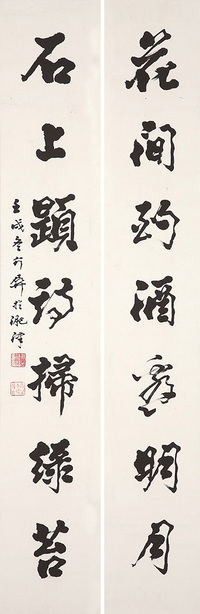 花間酌酒邀明月
石上題詩掃綠苔
壬戌冬